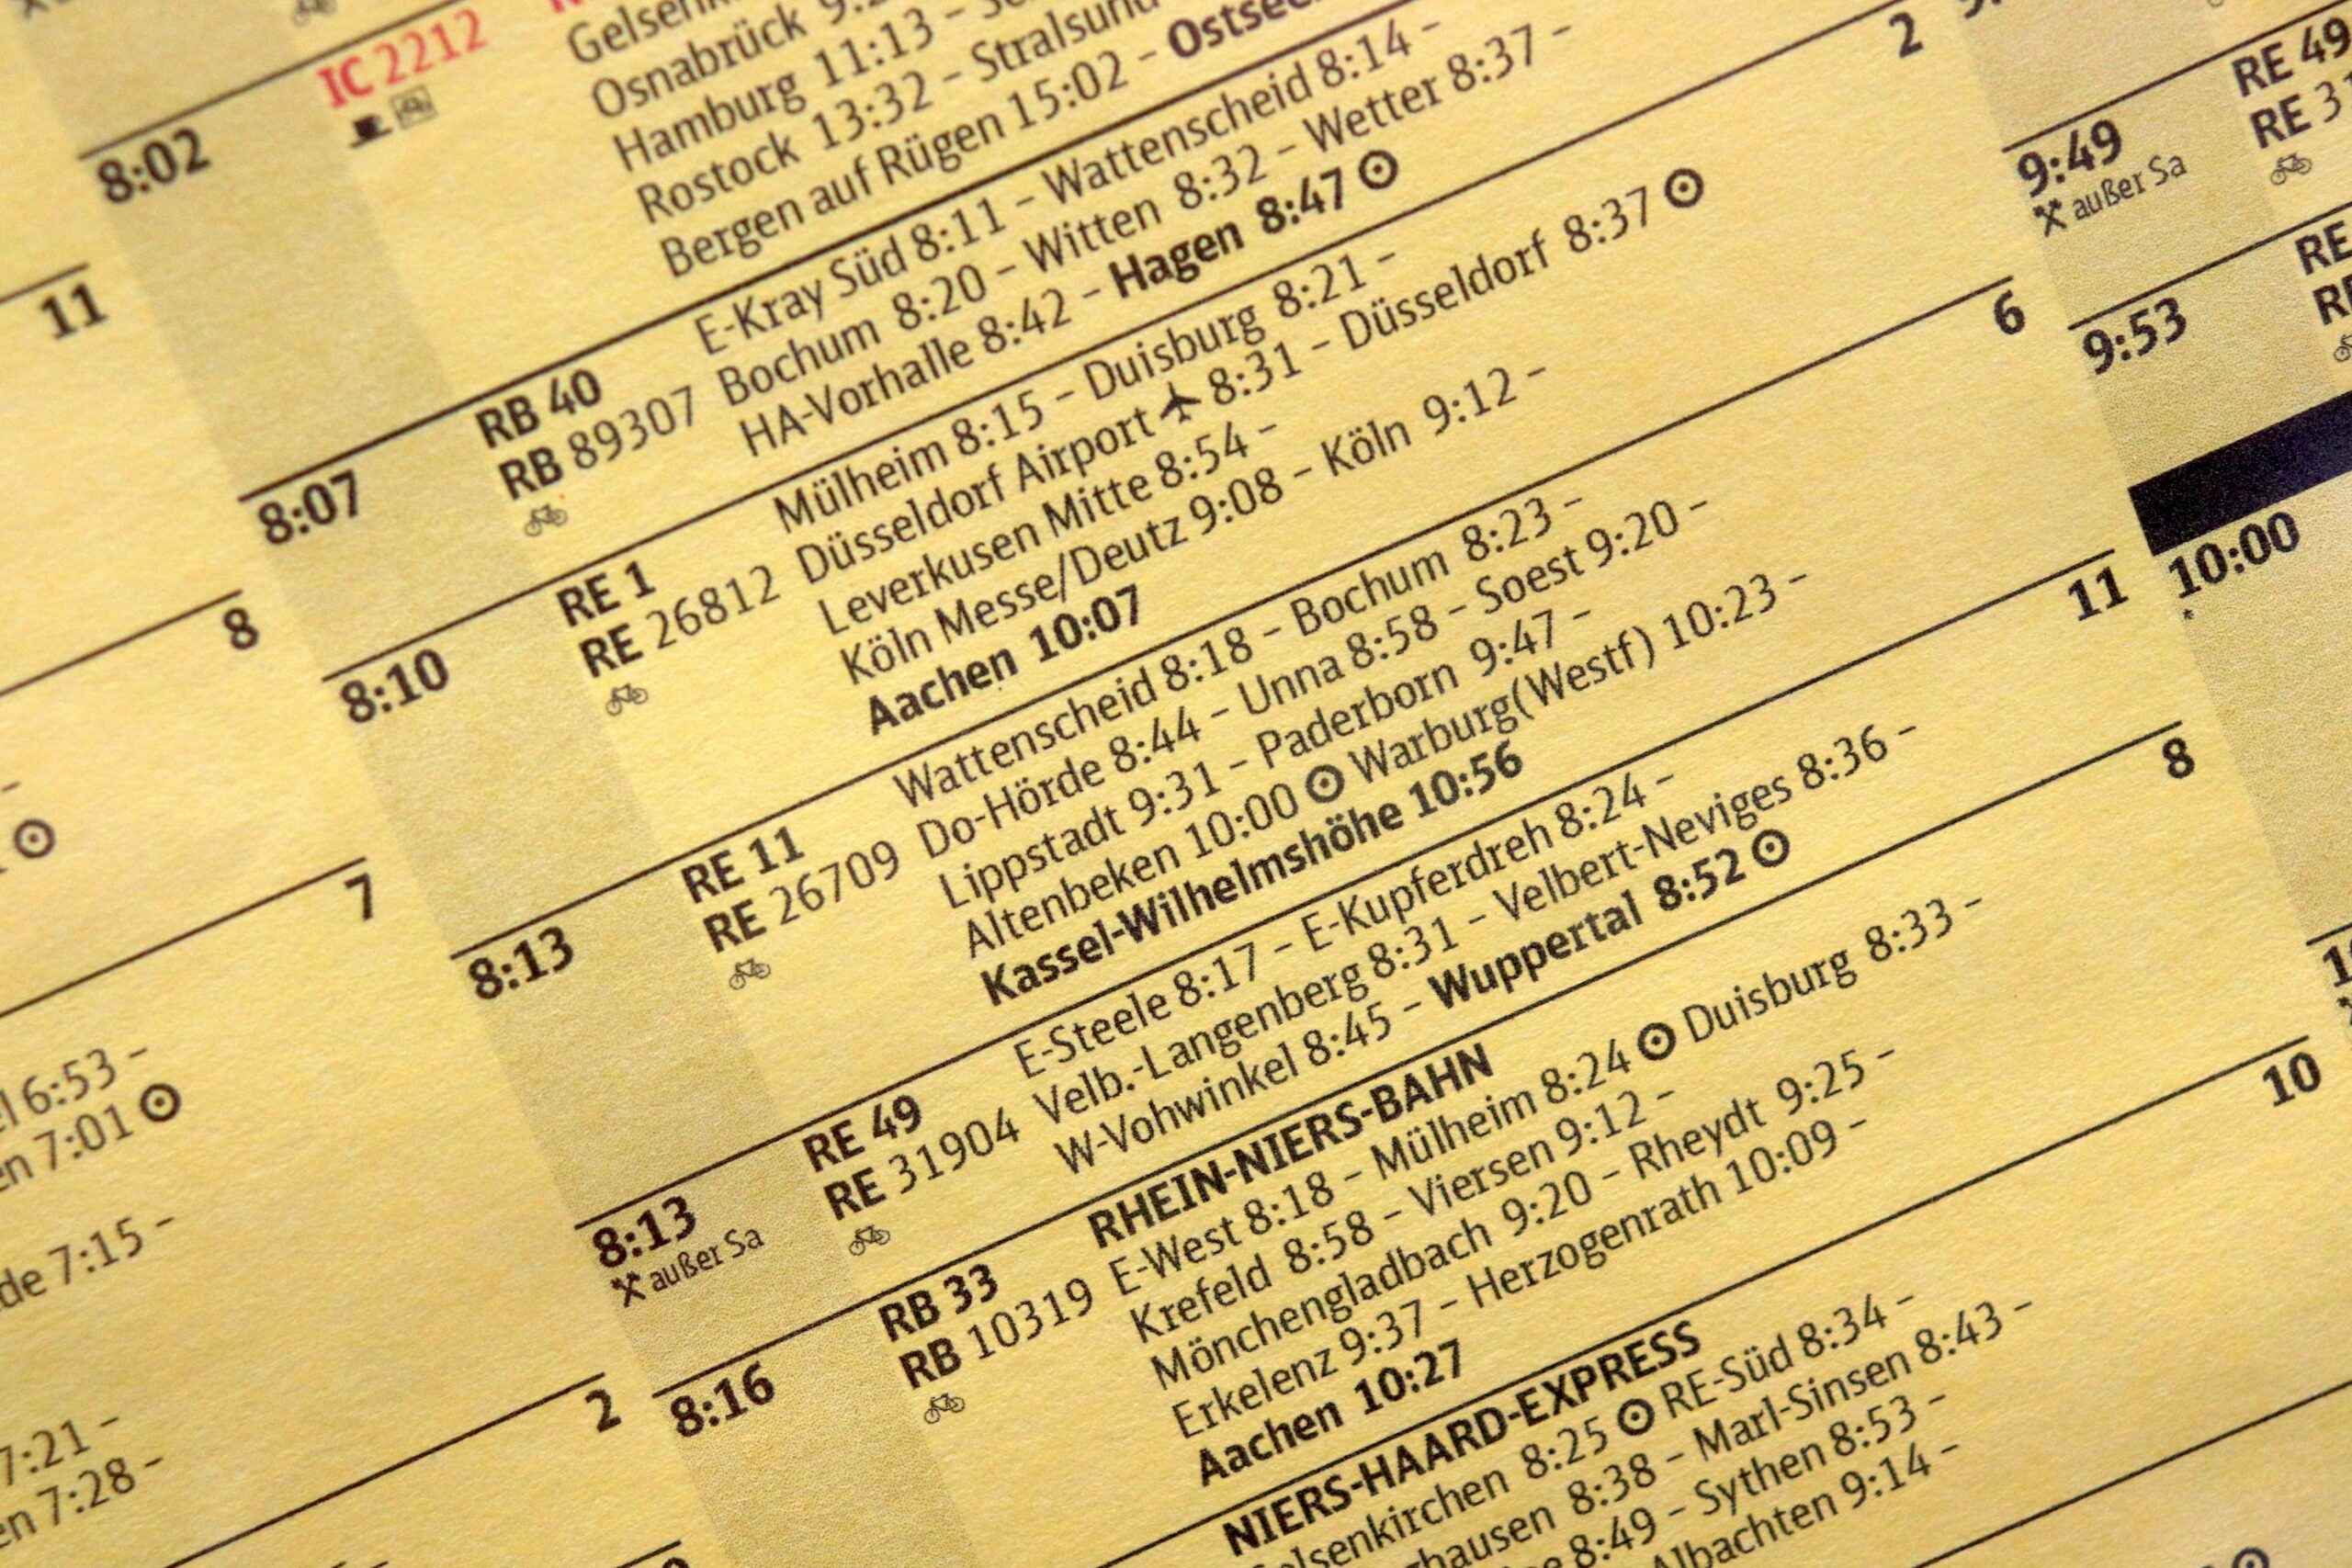 11
8
7
6:53 –
7:01
7:15 –
2
7:21 –
7:28 –
8:02 IC 2212
Osnabrück
Hamburg 11:13 –
Rostock 13:32 – Stralsund
Bergen auf Rügen 15:02 –
8:07 RB 40 E-Kray Süd 8:11 – Wattenscheid 8:14 –
RB 89307 Bochum 8:20 – Witten 8:32 – Wetter 8:37 –
HA-Vorhalle 8:42 – Hagen 8:47
8:10 RE 1 Mülheim 8:15 – Duisburg 8:21 – 2
RE 26812 Düsseldorf Airport 8:31 – Düsseldorf 8:37
Leverkusen Mitte 8:54 –
Köln Messe/Deutz 9:08 – Köln 9:12 –
Aachen 10:07
8:13 RE 11 Wattenscheid 8:18 – Bochum 8:23 – 6
RE 26709 Do-Hörde 8:44 – Unna 8:58 – Soest 9:20 –
Lippstadt 9:31 – Paderborn 9:47 –
Altenbeken 10:00 Warburg(Westf) 10:23 –
Kassel-Wilhelmshöhe 10:56
8:13 RE 49 E-Steele 8:17 – E-Kupferdreh 8:24 – 11
außer Sa RE 31904 Velb.-Langenberg 8:31 – Velbert-Neviges 8:36 –
W-Vohwinkel 8:45 – Wuppertal 8:52
8:16 RB 33 RHEIN-NIERS-BAHN 8
RB 10319 E-West 8:18 – Mülheim 8:24 Duisburg 8:33 –
Krefeld 8:58 – Viersen 9:12 –
Mönchengladbach 9:20 – Rheydt 9:25 –
Erkelenz 9:37 – Herzogenrath 10:09 –
Aachen 10:27
NIERS-HAARD-EXPRESS 10
8:25 RE-Süd 8:34 –
8:38 – Marl-Sinsen 8:43 –
8:49 – Sythen 8:53 –
Albachten 9:14 –
9:49 RE 49
außer Sa RE
9:53 RE
10:00